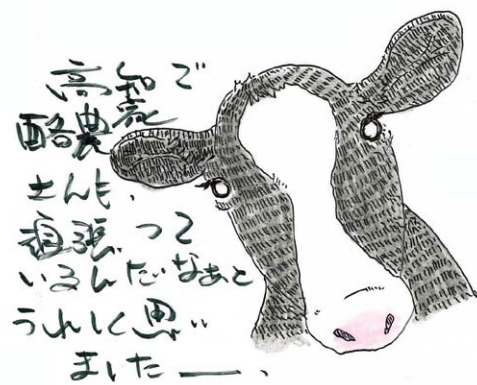 高知で
酪農家
さんも、
頑張って
いるんだなあと
うれしく思い
ましたー、